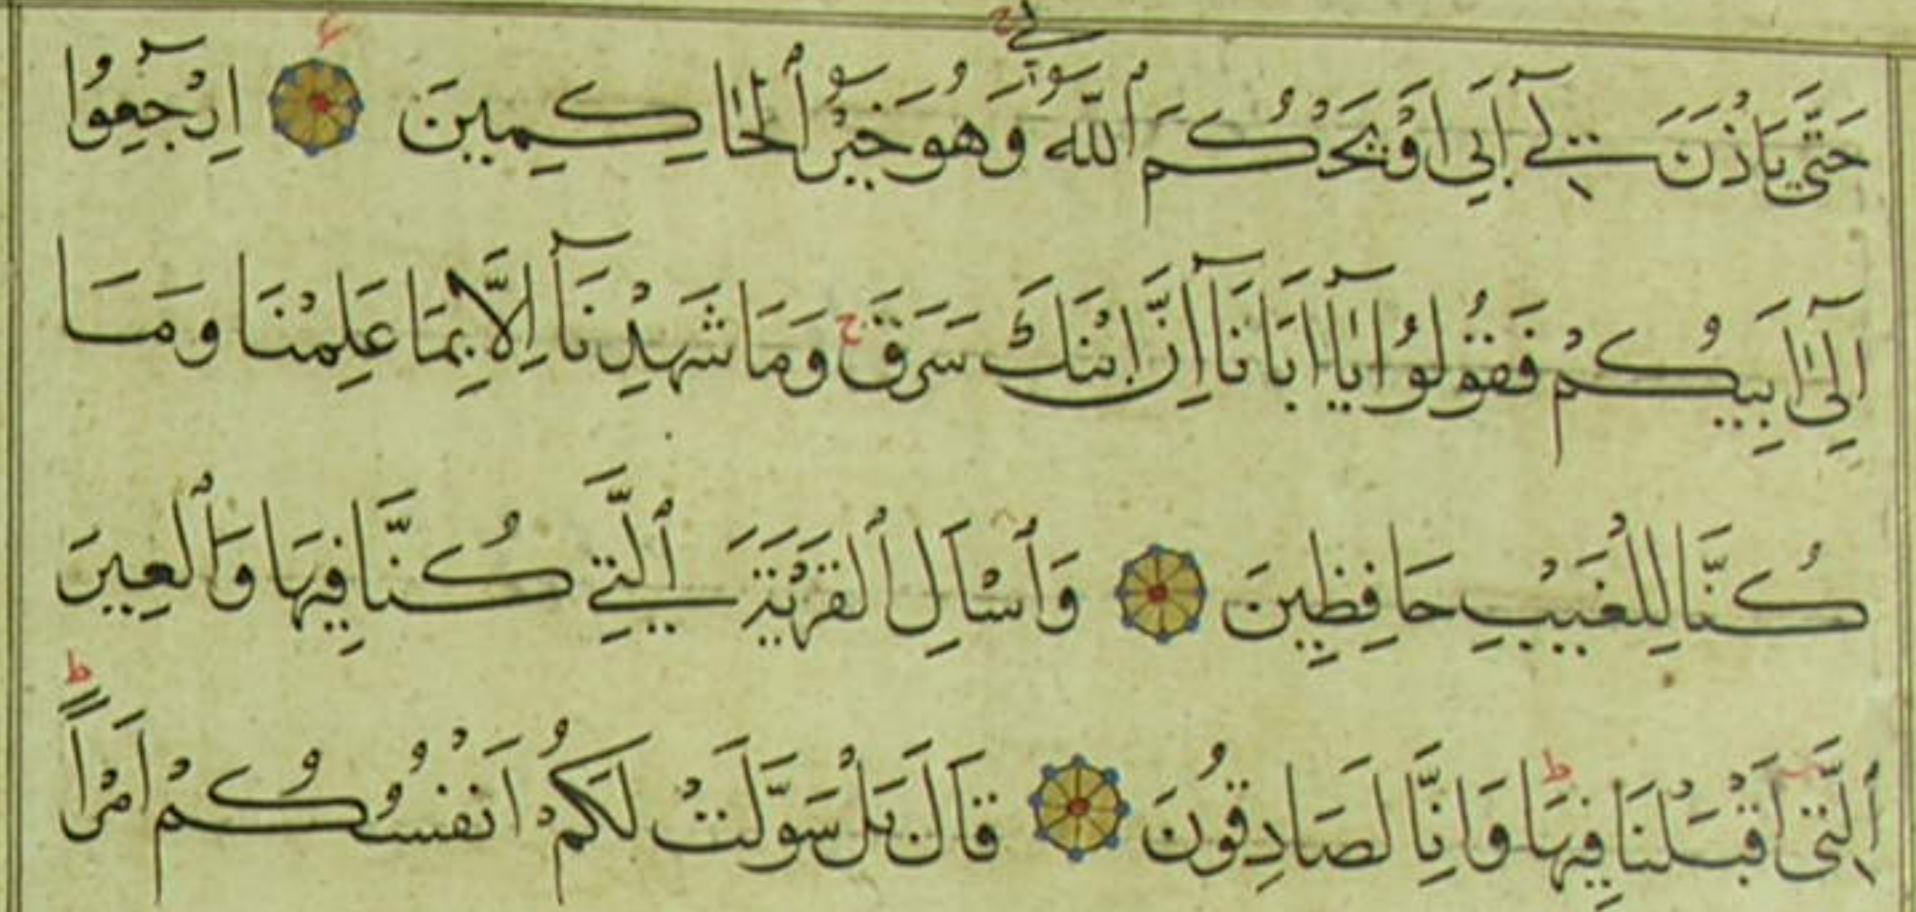 حَتَّى يَأْذَنَ لِي أَبِي أَوْ يَحْكُمَ ٱللّٰهُ لِي وَهُوَ خَيْرُ ٱلْحَاكِمِينَ اِرْجِعُوا
اِلٰٓى اَبِيكُمْ فَقُولُوا يَآ اَبَانَآ اِنَّ ابْنَكَ سَرَقَ وَمَا شَهِدْنَآ اِلَّا بِمَا عَلِمْنَا وَمَا
كُنَّا لِلْغَيْبِ حَافِظِينَ وَٱسْأَلِ ٱلْقَرْيَةَ ٱلَّتِي كُنَّا فِيهَا وَٱلْعِيرَ
ٱلَّتِى اَقْبَلْنَا فِيهَا وَاِنَّا لَصَادِقُونَ قَالَ بَلْ سَوَّلَتْ لَكُمْ اَنْفُسُكُمْ اَمْرًا